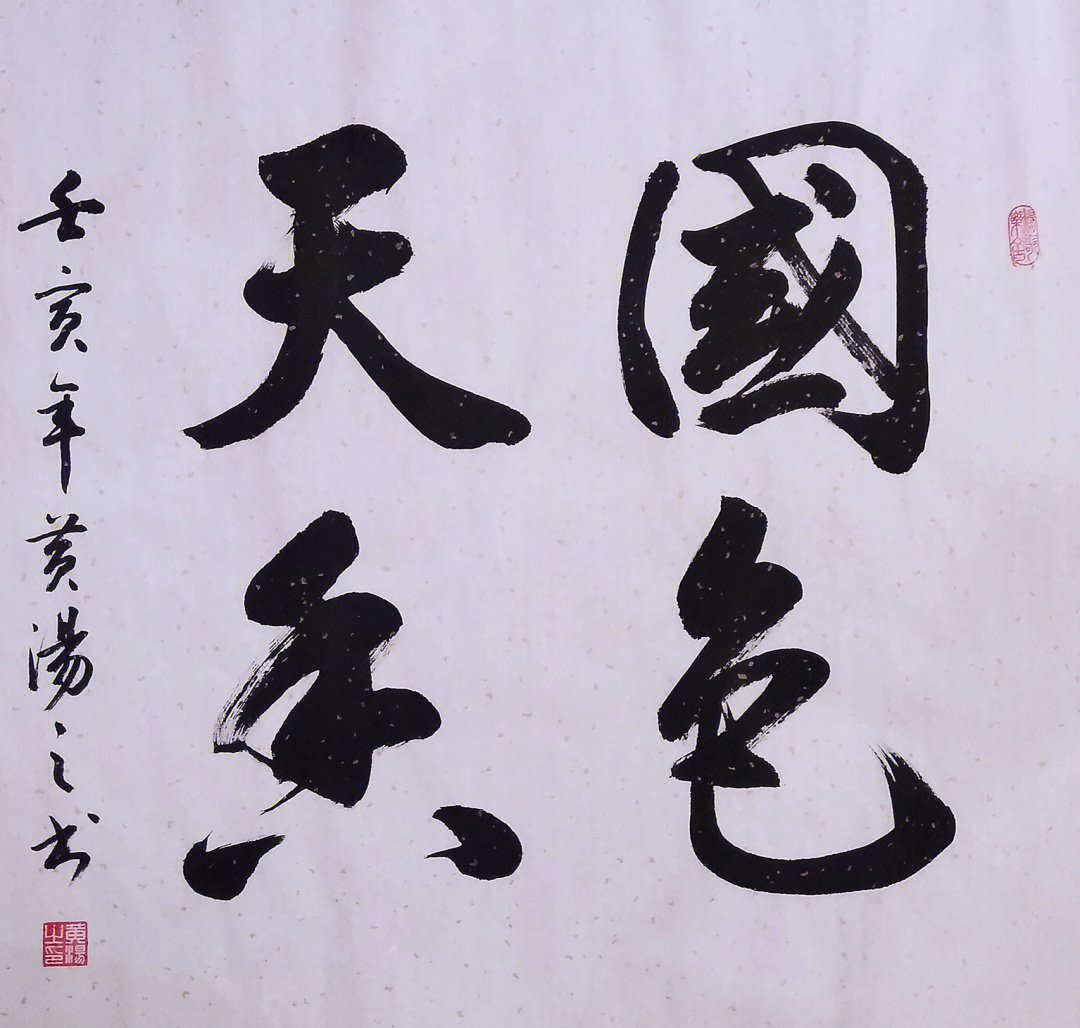 國色
天香
壬寅年黄湯之书
黄湯之印